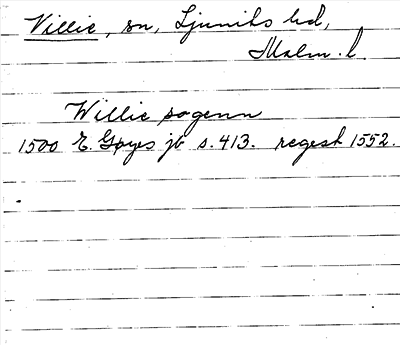 Villie, sn, Ljunits hd,
Malm. l.
Willie sogenn
1500 E. Gøyes jb s. 413. regest 1552.